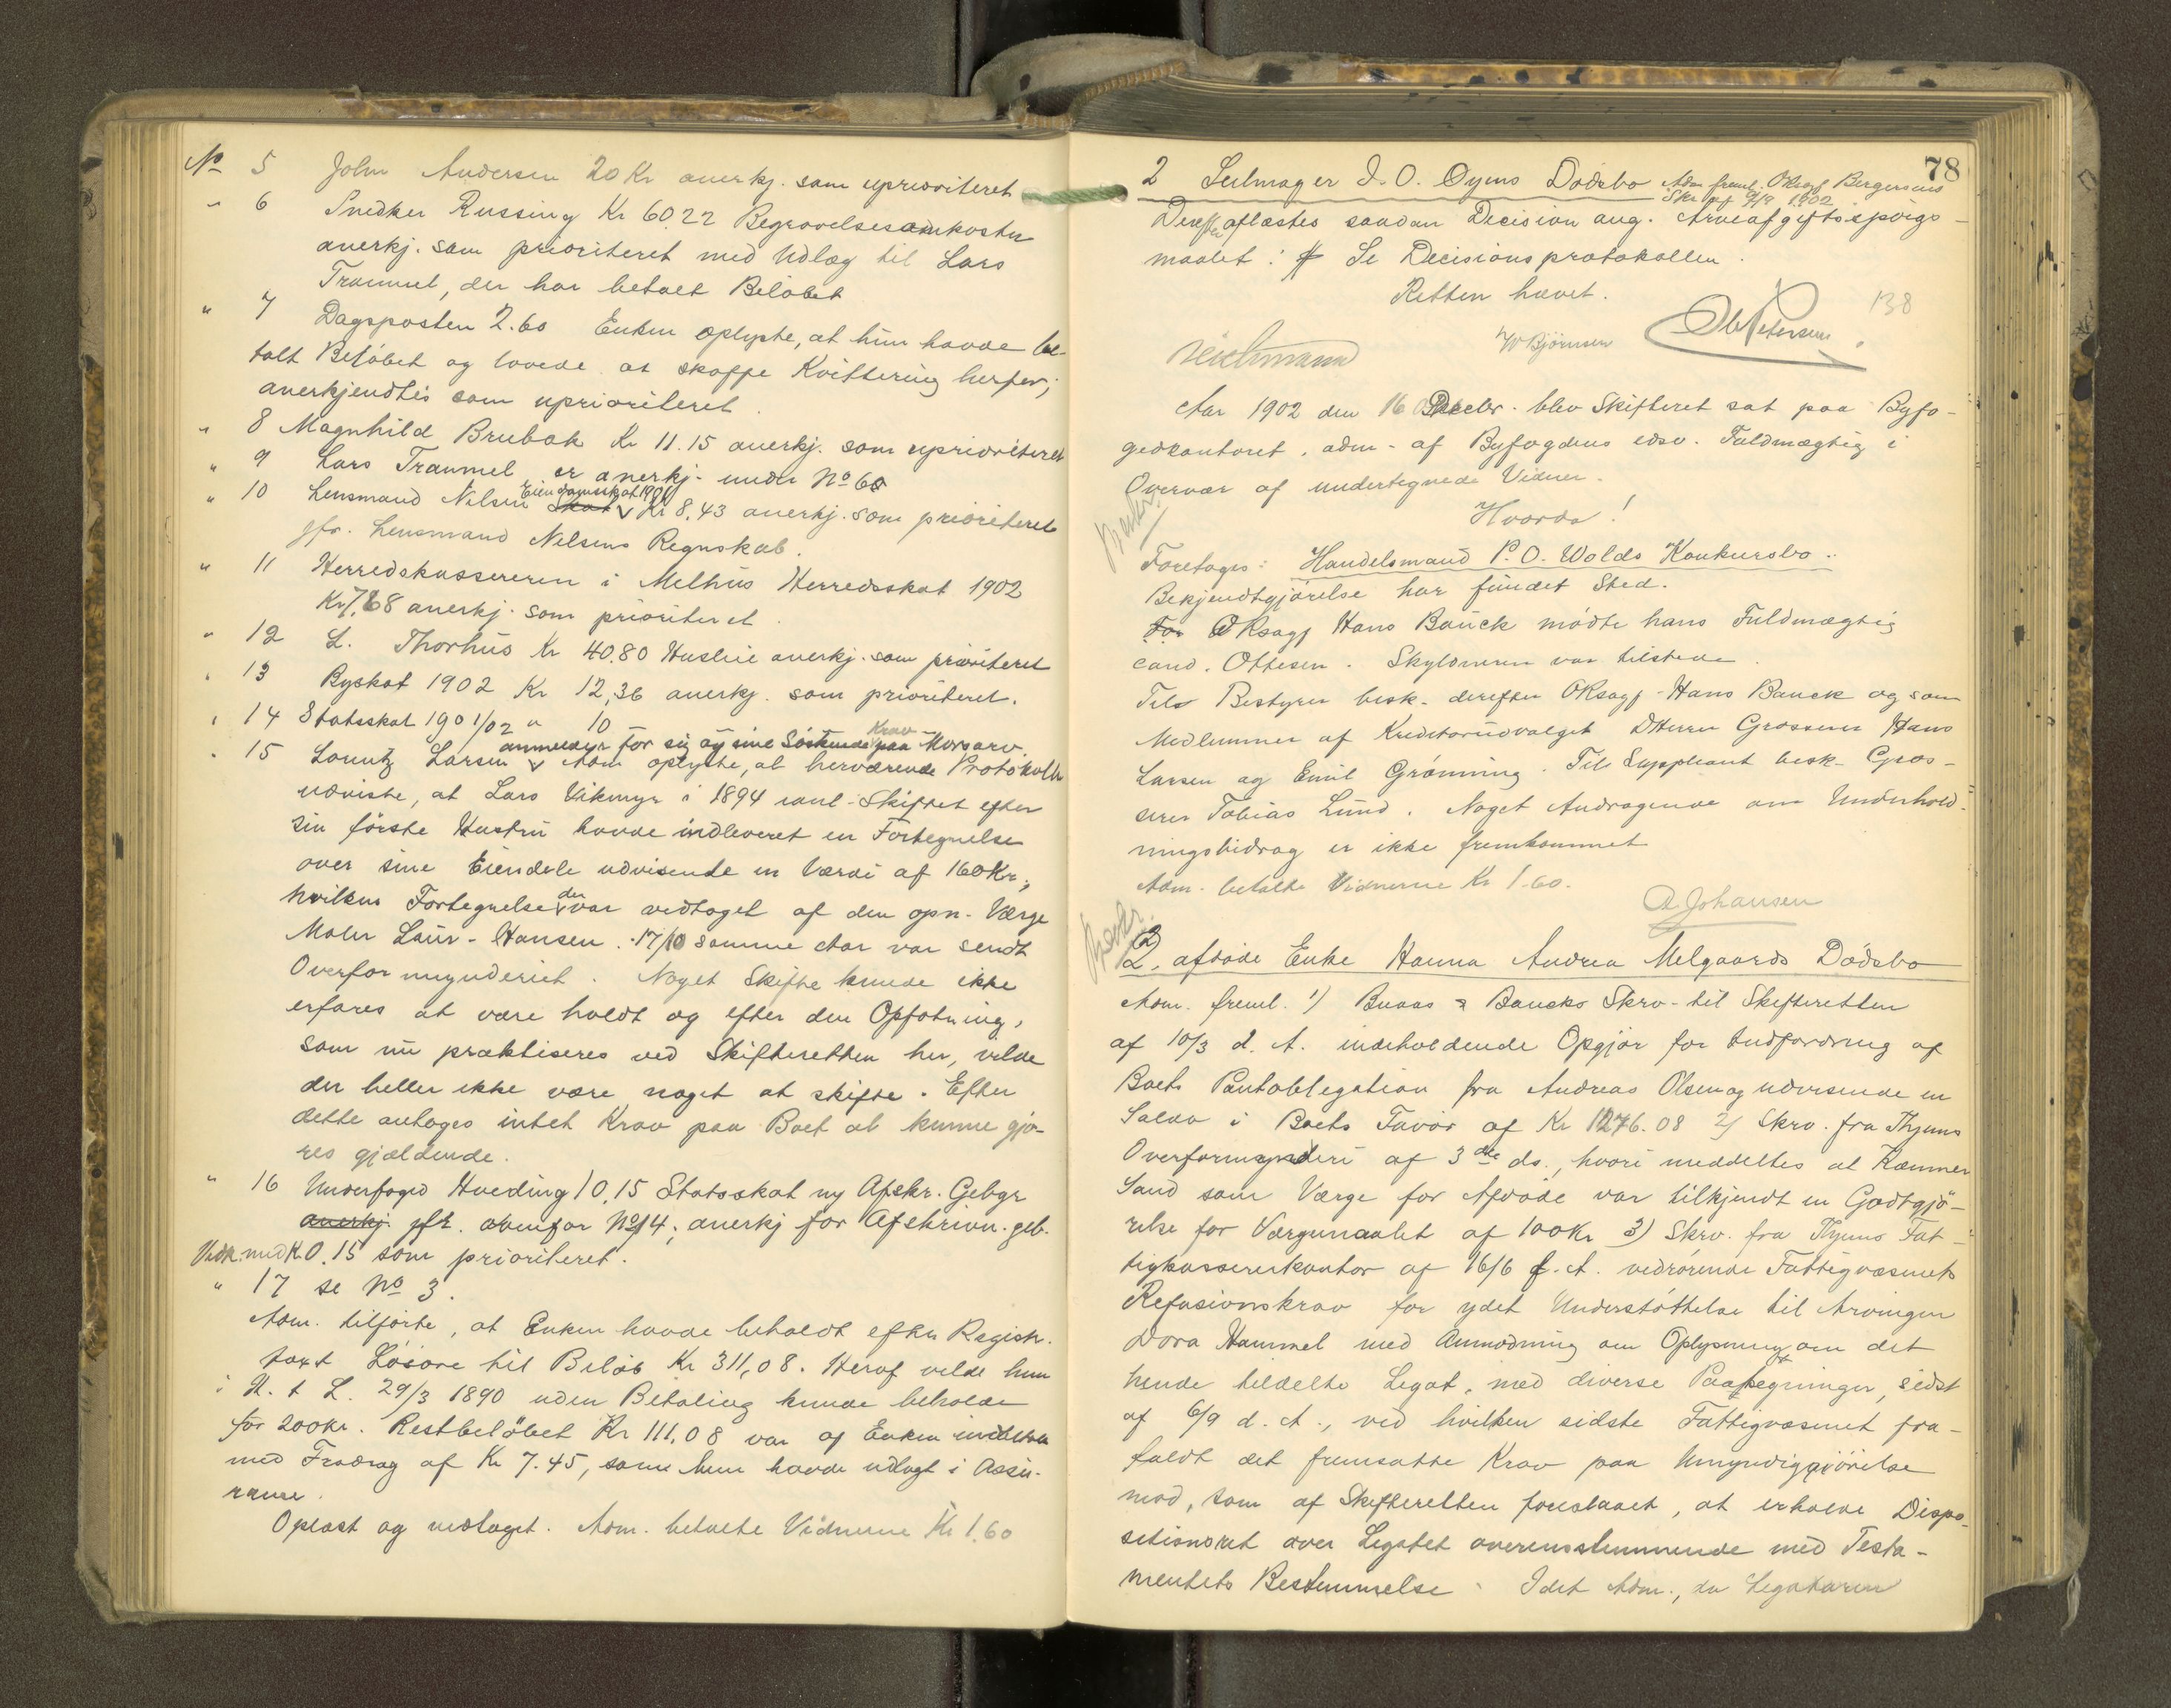 No 5 John Andersen 20 Kr anerkj. som uprioriteret
" 6 Snedker Russing Kr 60.22 Begravelsesomkoster
anerkj. som prioriteret med Udlæg til Lars
Trammel, der har betalt Beløbet
" 7 Dagsposten 2.60 Enken oplyste, at hun havde be-
talt Beløbet og lovede at skaffe Kvittering herfor;
anerkjendtes som uprioriteret.
" 8 Magnhild Brubak Kr 11.15 anerkj. som uprioriteret
" 9 Lars Trammel er anerkj. under No 6
" 10 Lensmand Nilsen Skat Eiendomsskat 1901 Kr 8,43 anerkj. som prioriteret
jfr. Lensmand Nelsens Regnskab.
" 11 Herredskassereren i Melhus Herredsskat 1902
Kr 7,68 anerkj. som prioriteret.
" 12 L. Thorhus Kr 40.80 Husleie anerkj. som prioriteret
" 13 Byskat 1902 Kr 12,36 anerkj. som prioriteret.
" 14 Statsskat 1901/02 " 10
" 15 Lorentz Larsen anmelder for sig og sine Søskende Krav paa Morsarv.
Adm oplyste, at herværende Protokoller
udviste, at Lars Vikmyr i 1894 anl. Skiftet efter
sin første Hustru havde indleveret en Fortegnelse
over sine Eiendele udvisende en Værdi af 160 Kr,
hvilken Fortegnelse der var vedtaget af den opn. Værge
Maler Laur. Hansen. 17/10 samme Aar var sendt
Overformynderiet. Noget Skifte kunde ikke
erfares at være holdt og efter den Opfatning,
som nu praktiseres ved Skifteretten her, vilde
der heller ikke være noget at skifte. Efter
dette antoges intet Krav paa Boet at kunne gjø-
res gjældende.
" 16 Underfoged Hveding 10,15 Statsskat og Afskr. Gebyr
anerkj. jfr. ovenfor No 14; anerkj for Afskrivn. geb.
Vedk. med K. 0.15 som prioriteret.
" 17 se No 3.
Adm. tilførte, at Enken havde beholdt efter Registr.
taxt Løsøre til Beløb Kr 311,08. Heraf vilde hun
i H. t L. 29/3 1890 uden Betaling kunde beholde
for 200 Kr. Restbeløbet Kr 111,08 var af Enken indbetalt
med Fradrag af Kr 7.45, som hun havde udlagt i Assu-
rance.
Oplæst og vedtaget. Adm. betalte Vidnerne Kr 1.60
78
2 Seilmager J. O. Øyens Dødsbo Adm freml. ORsagf Bergersens
Skr af 9/9 1902
Derefter aflæstes saadan Decision ang. Arveafgiftsspørgs-
maalet: Se Decisionsprotokollen.
Retten hævet.
138
W Bjørnsen Ole Petersen
Aar 1902 den 16 Decbr. blev Skifteret sat paa Byfo-
gedkontoret, adm. af Byfogdens edsv. Fuldmægtig i
Overvær af undertegnede Vidner.
Hvorda!
Foretages: Handelsmand P. O. Wolds Konkursbo.
Bekjendtgjørelse har fundet Sted.
For ORsagf Hans Bauck mødte hans Fuldmægtig
cand. Ottesen. Skyldneren var tilstede.
Til Bestyrer besk. derefter ORsagf. Hans Bauck og som
Medlemmer af Kreditorudvalget DHerrer Grosserer Hans
Larsen og Emil Grønning. Til Suppleant besk. Gros-
serer Tobias Lund. Noget Andragende om Underhold-
ningsbidrag er ikke fremkommet
Adm. betalte Vidnerne Kr 1.60.
A Johansen
2, afdøde Enke Hanna Andrea Melgaards Dødsbo
Adm. freml. 1) Buaas & Baucks Skrv. til Skifteretten
af 10/3 d. A. indeholdende Opgjør for Indfordring af
Boets Pantobligation fra Andreas Olsen og udvisende en
Saldo i Boets Favør af Kr 1276.08 2) Skrv. fra Thjems
Overformynderi af 3die ds., hvori meddeltes at Kæmner
Sand som Værge for Afdøde var tilkjendt en Godtgjø-
relse for Værgemaalet af 100 Kr 3) Skrv. fra Thjems Fat-
tigkassererkontor af 16/6 d. A. vedrørende Fattigvæsenets
Refusionskrav for ydet Understøttelse til Arvingen
Dora Hammel med Anmodning om Oplysning om det
hende tildelte Legat, med diverse Paategninger, sidst
af 6/9 d. A., ved hvilken sidste Fattigvæsenet fra-
faldt det fremsatte Krav paa Umyndiggjørelse
mod, som af Skifteretten foreslaaet, at erholde Dispo-
sitionsret over Legatet overensstemmende med Testa-
mentets Bestemmelse. Idet Adm., da Legataren